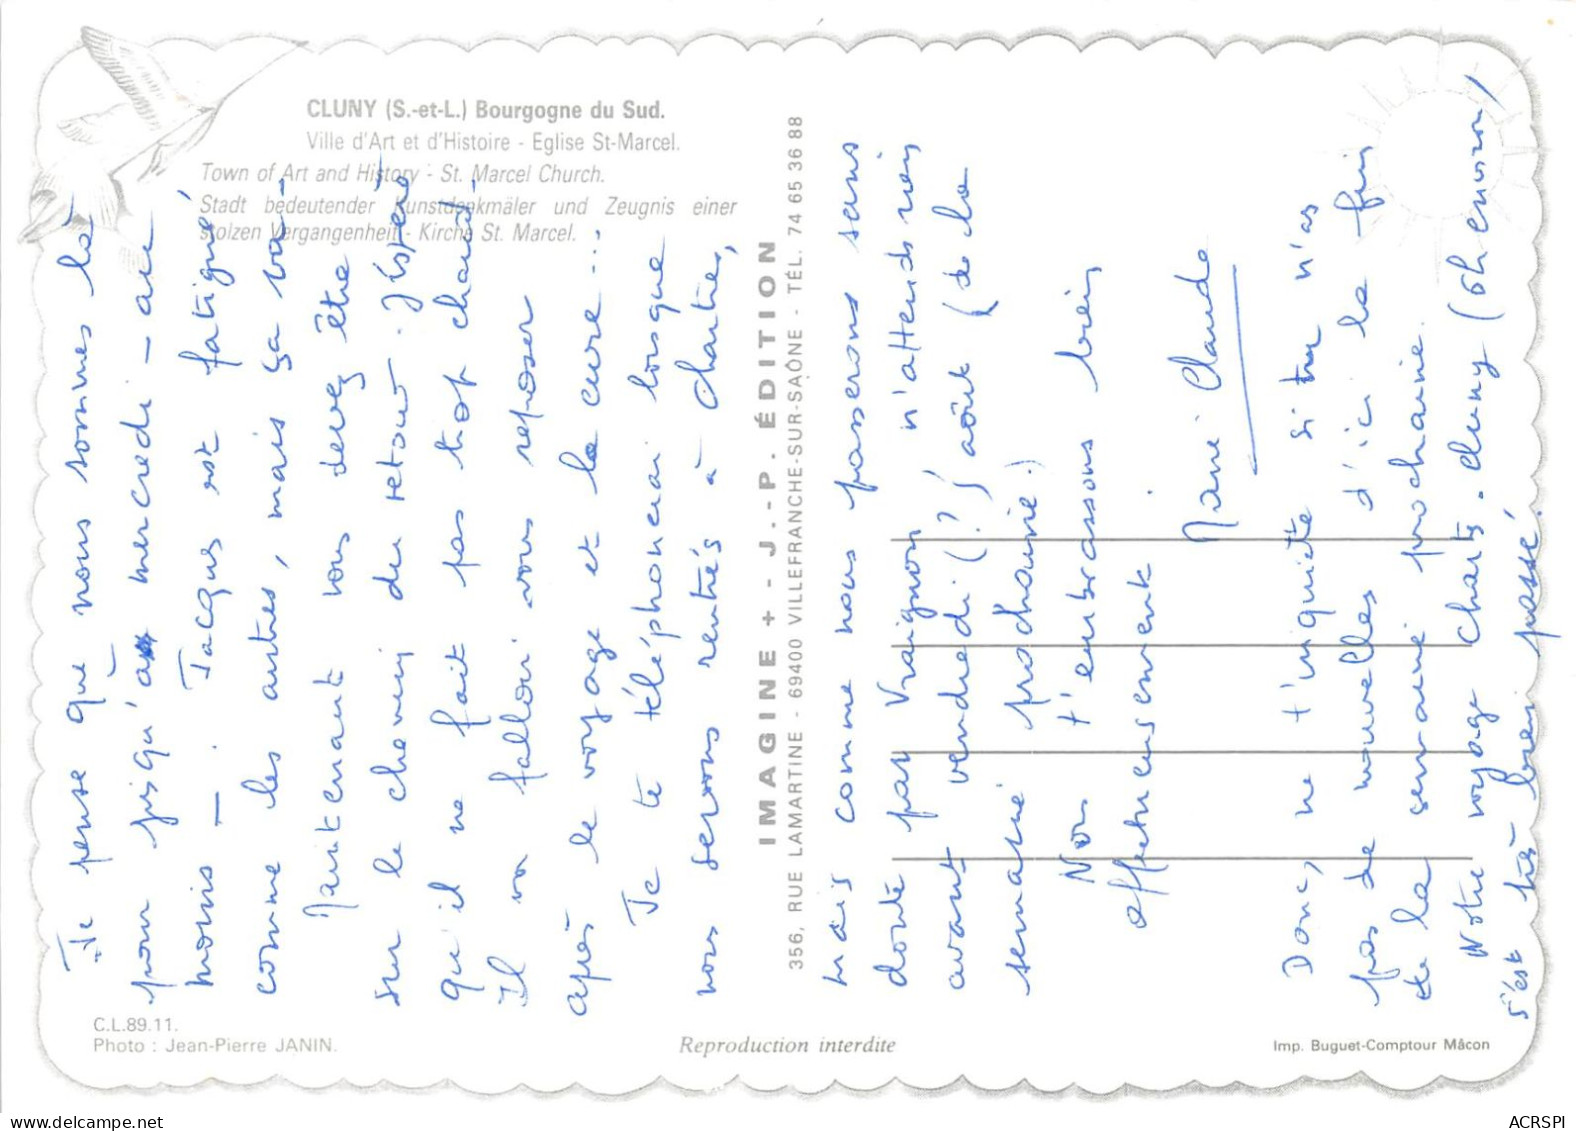 CLUNY (S.-et-L.) Bourgogne du Sud.
Ville d'Art et d'Histoire - Eglise St-Marcel.
Town of Art and History - St. Marcel Church.
Stadt bedeutender Kunstdenkmäler und Zeugnis einer
stolzen Vergangenheit - Kirche St. Marcel.
Je pense que nous sommes là
pour jusqu'à mercredi - au
moins - . Jacques est fatigué
comme les autres, mais ça va -
Maintenant vous devez être
sur le chemin du retour - J'espère
qu'il ne fait pas trop chaud -
Il va falloir vous reposer
après le voyage et la cure...
Je te téléphonerai lorsque
nous serons rentrés à Chartres,
IMAGINE + - J.-P. ÉDITION
356, RUE LAMARTINE - 69400 VILLEFRANCHE-SUR-SAÔNE - TÉL. 74 65 36 88
mais comme nous passerons sans
doute par Vraignon n'attends rien
avant vendredi (?) août (de la
semaine prochaine !)
Nous t'embrassons bien
affectueusement.
Marie Claude
Donc, ne t'inquiète si tu n'as
pas de nouvelles d'ici la fin
de la semaine prochaine.
Notre voyage Charts - Cluny (6h environ)
s'est très bien passé.
C.L.89.11.
Photo : Jean-Pierre JANIN.
Reproduction interdite
Imp. Buguet-Comptour Mâcon
ACRSPI